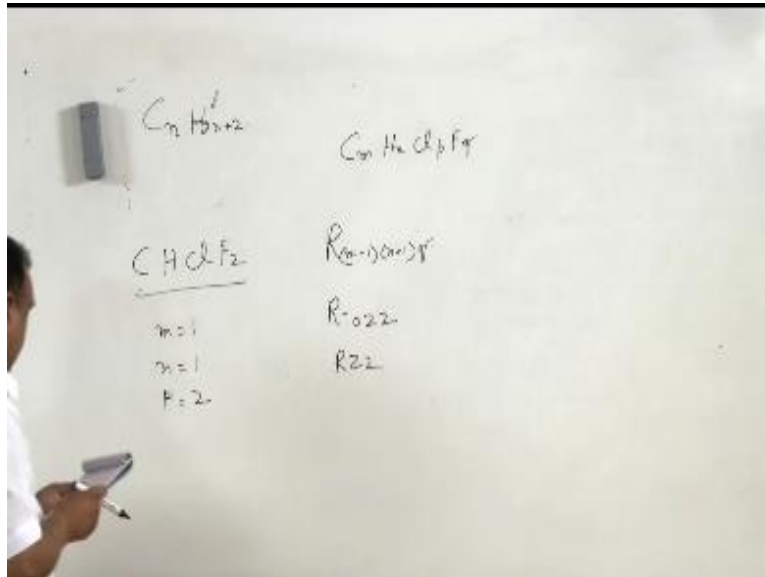 CnH2n+2
CmHnClpFq
CHClF2
R(m-1)(n+1)q
m=1
R-022
n=1
R22
F=2